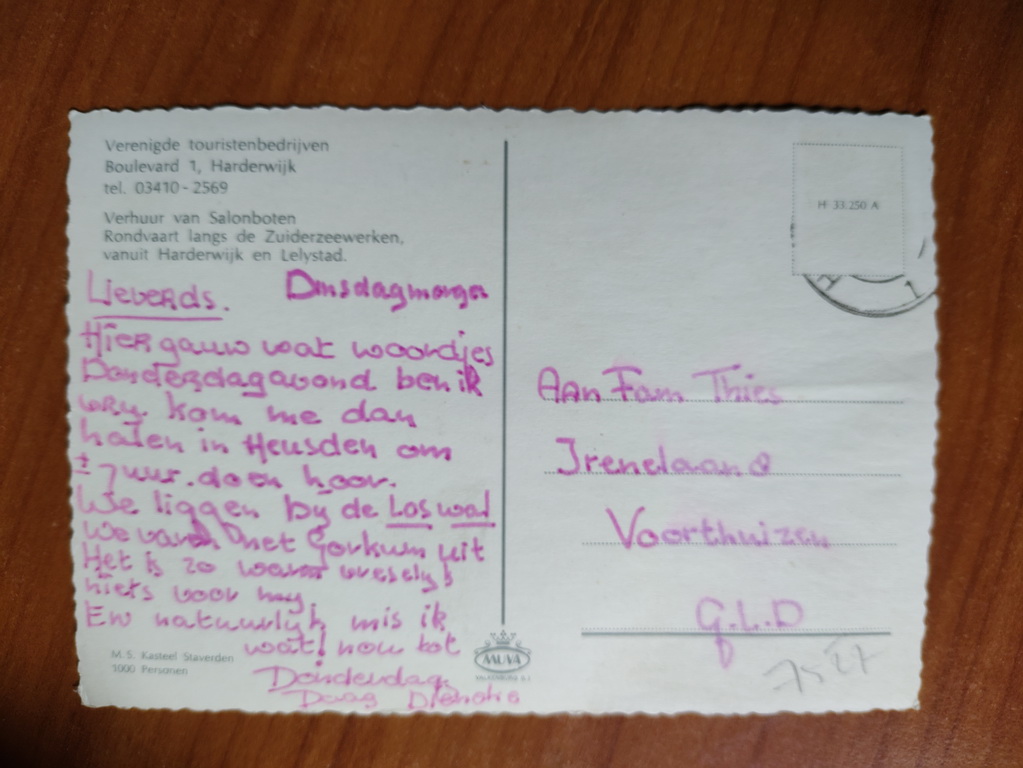 Verenigde touristenbedrijven
Boulevard 1, Harderwijk
tel. 03410-2569
Verhuur van Salonboten
Rondvaart langs de Zuiderzeewerken,
vanuit Harderwijk en Lelystad.
Lieverds. Dinsdagmorgen
Hier gauw wat woordjes
Donderdagavond ben ik
vry. kom me dan
halen in Heusden om
± 7 uur. doen hoor.
We liggen by de Loswal
We varen net Gorkum uit
Het is zo warm vreselyk
niets voor my
En natuurlyk mis ik
wat! nou tot
Donderdag.
Daag
M.S. Kasteel Staverden
1000 Personen
MUVA
H 33.250 A
Aan Fam Thies
Irenelaan 8
Voorthuizen
G.L.D